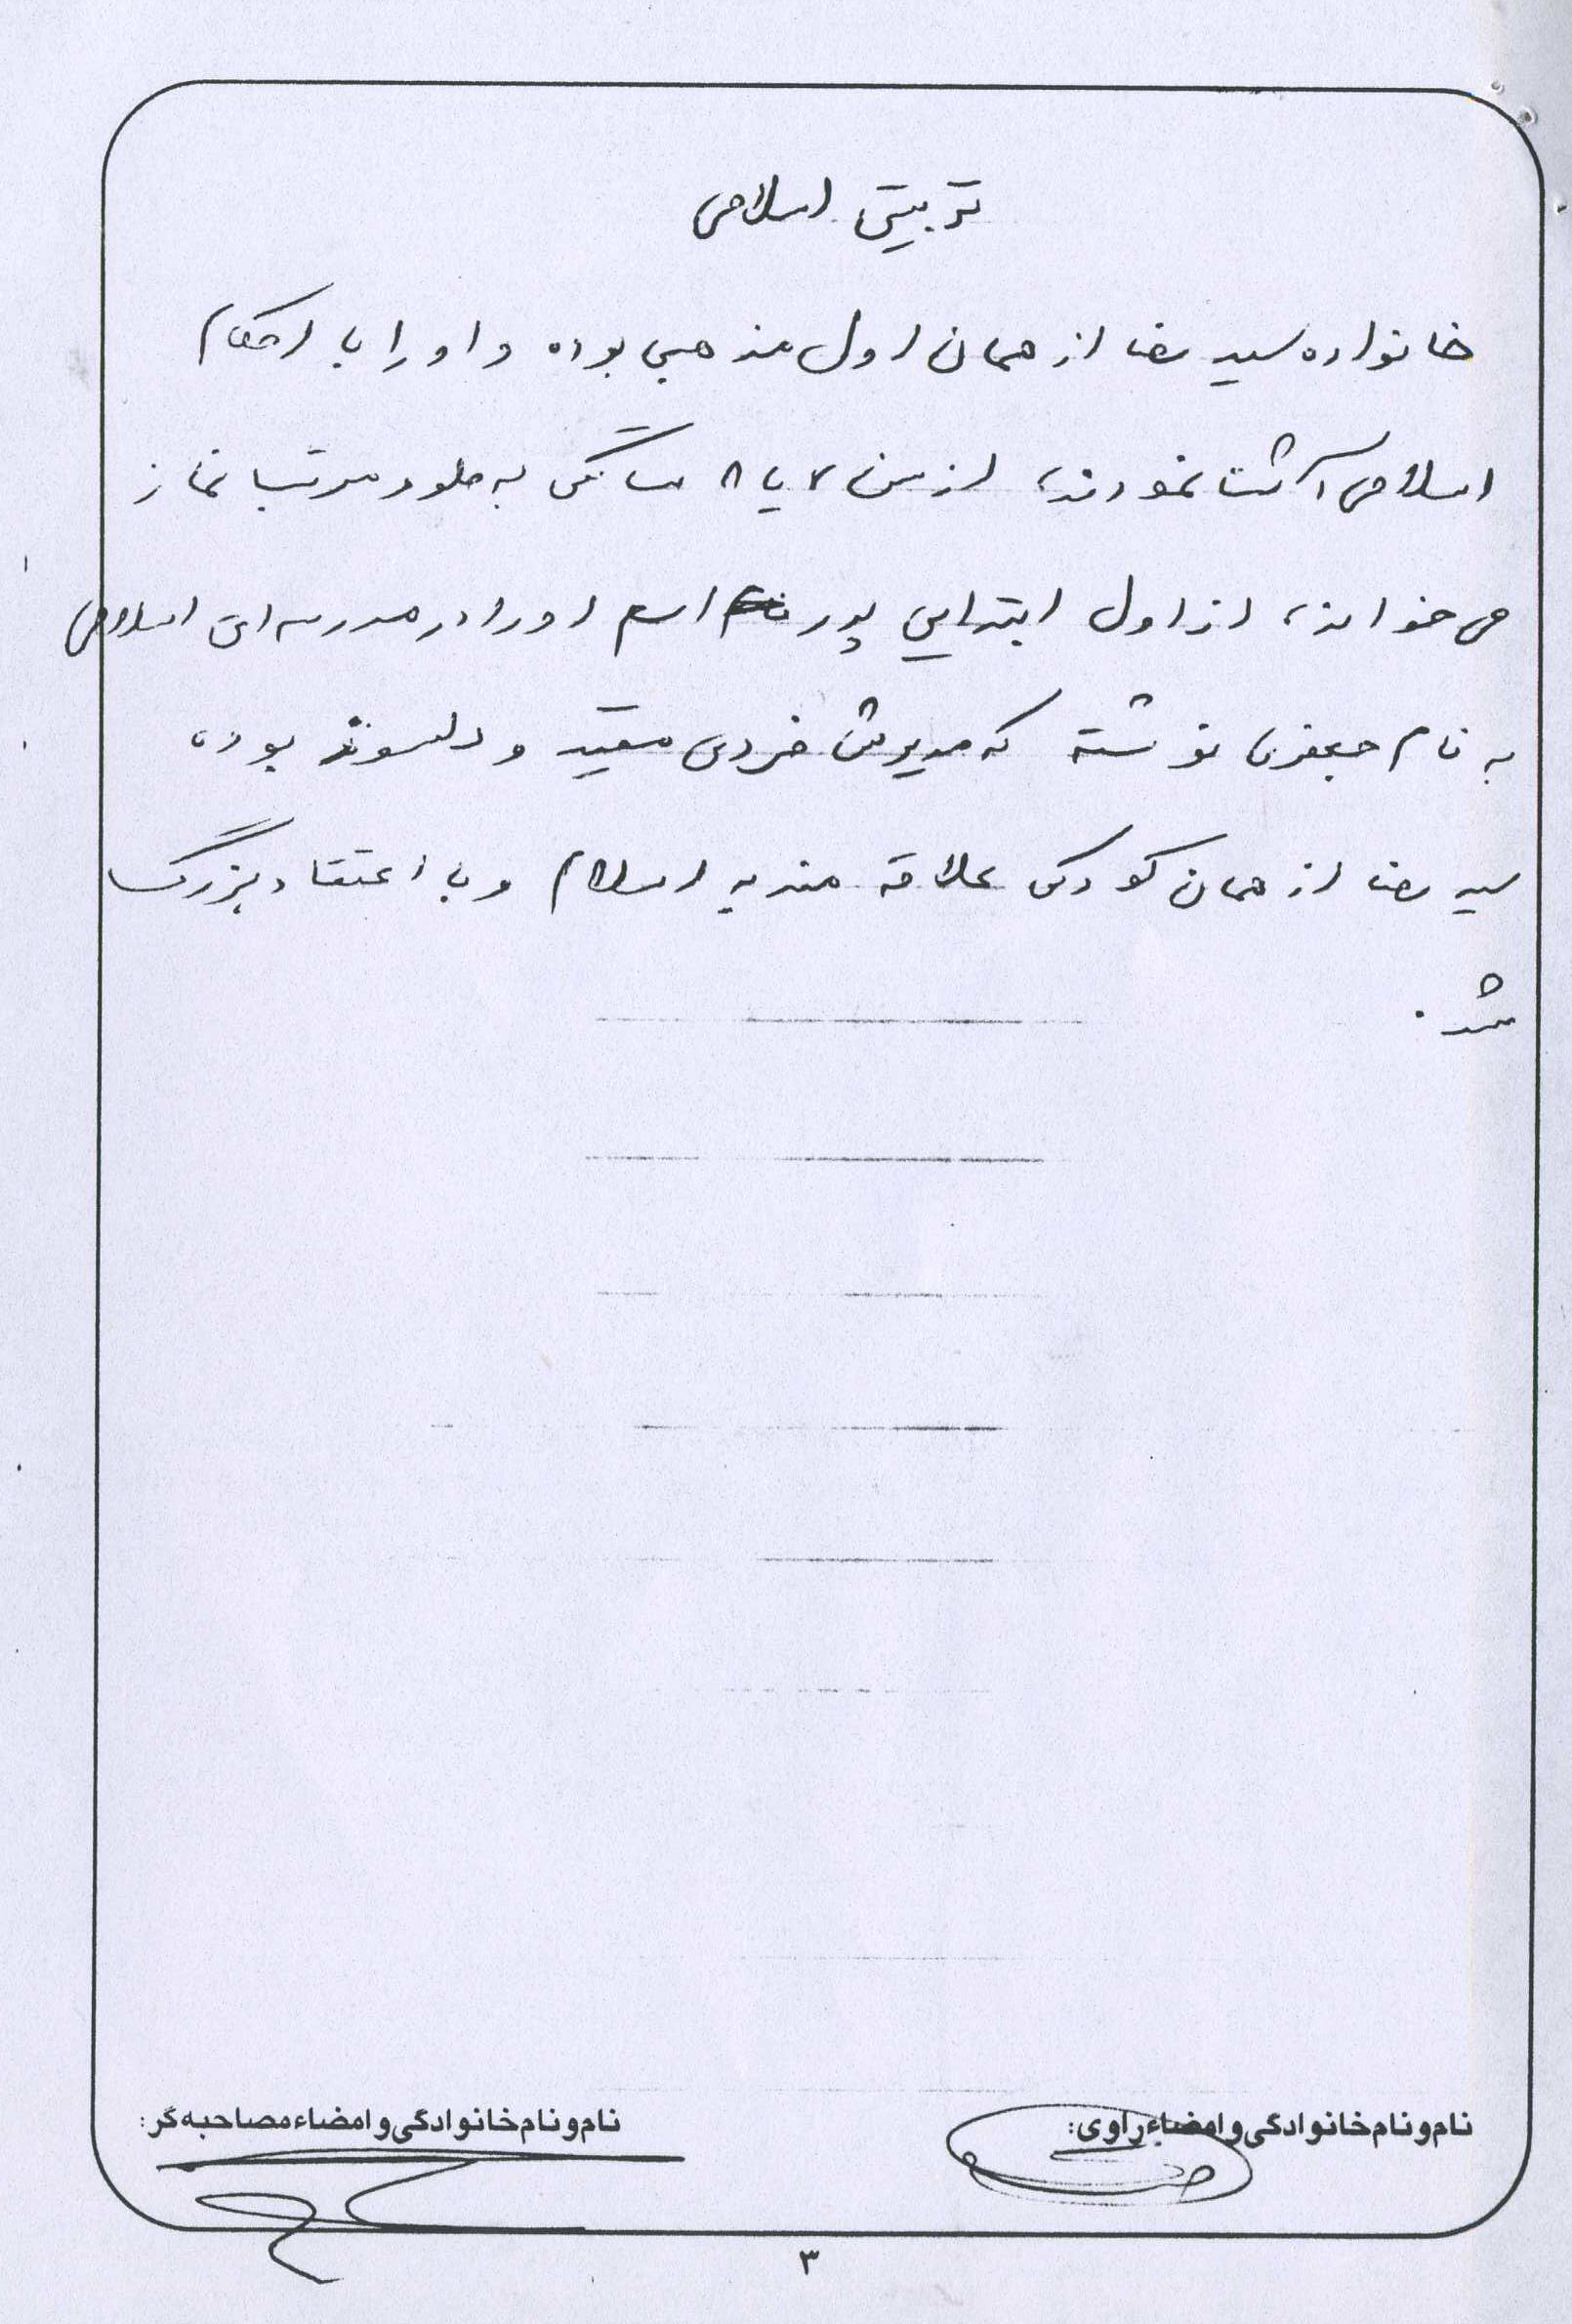 تربیت اسلامی
خانواده سید رضا از همان اول مذهبی بوده و او را با احکام
اسلامی آشنا نمودند، از سن ۷ یا ۸ سالگی به طور مرتب نماز
می خواند، از اول ابتدایی پدر اسم او را در مدرسه ای اسلامی
به نام جعفری نوشته که مدیرش فردی مقید و دلسوز بود،
سید رضا از همان کودکی علاقه مند به اسلام و با اعتقاد بزرگ
شد.
نام و نام خانوادگی و امضاء راوی:
نام و نام خانوادگی و امضاء مصاحبه گر:
۳